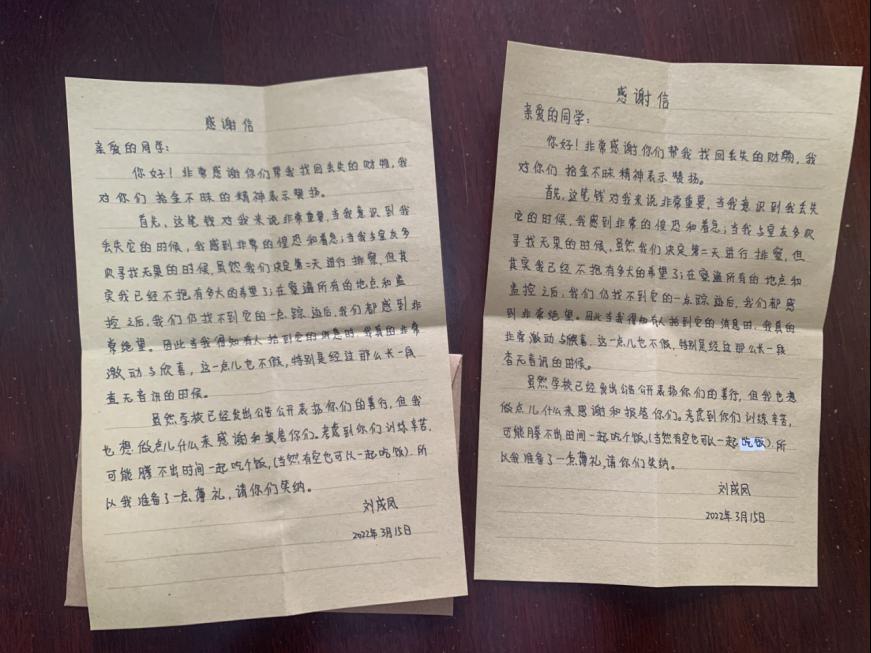 感谢信
亲爱的同学:
你好!非常感谢你们帮我找回丢失的财物,我
对你们拾金不昧的精神表示赞扬。
首先,这笔钱对我来说非常重要,当我意识到我
丢失它的时候,我感到非常的惶恐和着急;当我与室友多
次寻找无果的时候,虽然我们决定第二天进行排察,但其
实我已经不抱有多大的希望了;在察遍所有的地点和监
控之后,我们仍找不到它的一点踪迹后,我们都感到非
常绝望。因此当我得知有人拾到它的消息时,我真的非常
激动与欣喜,这一点儿也不假,特别是经过那么长一段
杳无音讯的时候。
虽然学校已经发出公告公开表扬你们的善行,但我
也想做点儿什么来感谢和报答你们。考虑到你们训练辛苦,
可能腾不出时间一起吃个饭,(当然有空也可以一起吃饭).所
以我准备了一点薄礼,请你们笑纳。
刘成凤
2022年3月15日
感谢信
亲爱的同学:
你好!非常感谢你们帮我找回丢失的财物,我
对你们拾金不昧精神表示赞扬。
首先,这笔钱对我来说非常重要,当我意识到我丢失
它的时候,我感到非常的惶恐和着急;当我与室友多次
寻找无果的时候,虽然我们决定第二天进行排察,但
其实我已经不抱有多大的希望了;在察遍所有的地点和
监控之后,我们仍找不到它的一点踪迹后,我们都感
到非常绝望。因此当我得知有人拾到它的消息时,我真的
非常激动与欣喜,这一点儿也不假,特别是经过那么长一段
杳无音讯的时候。
虽然学校已经发出公告公开表扬你们的善行,但我也想
做点儿什么来感谢和报答你们。考虑到你们训练辛苦,
可能腾不出时间一起吃个饭,(当然有空也可以一起吃饭).所
以我准备了一点薄礼,请你们笑纳。
刘成凤
2022年3月15日